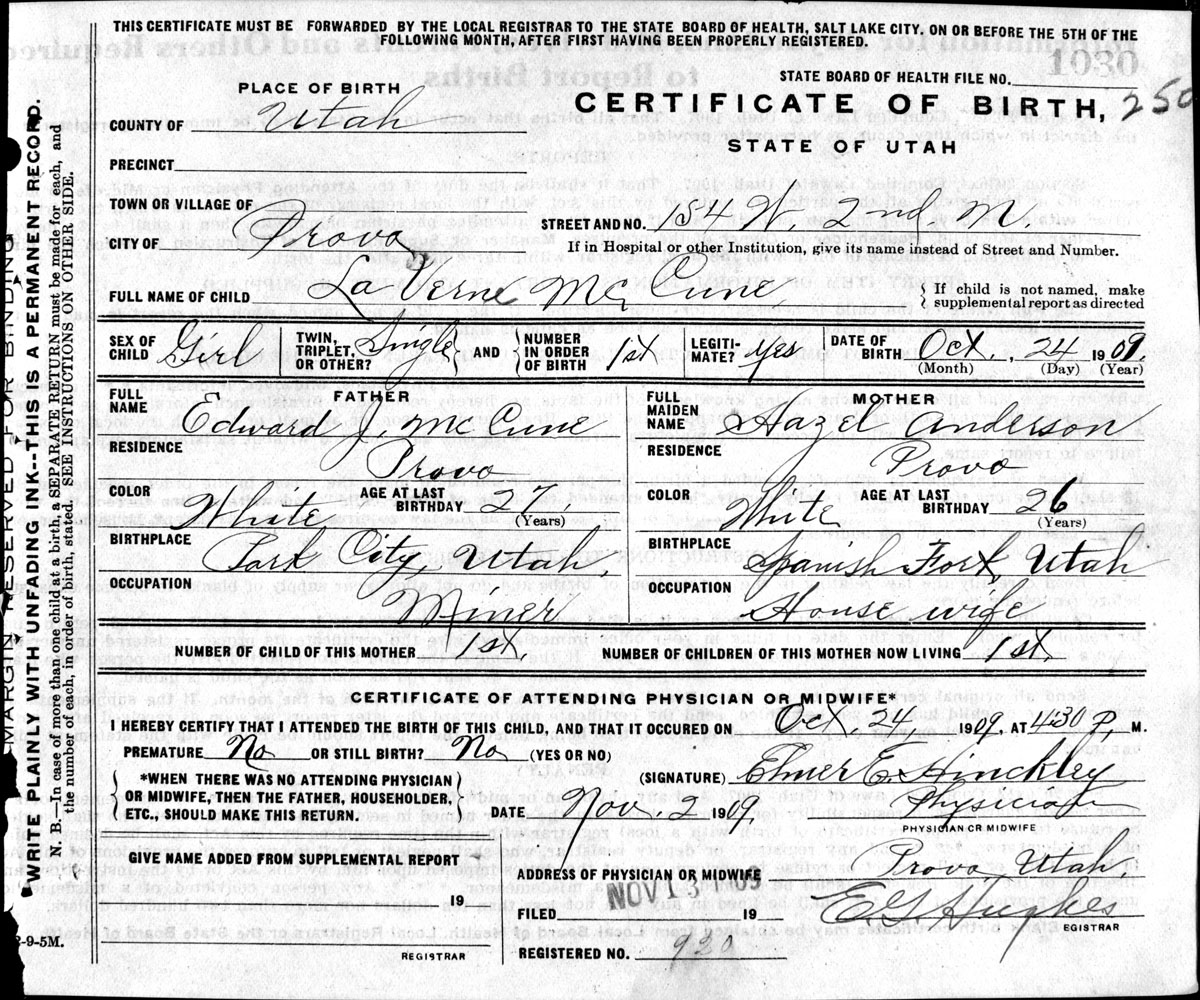 THIS CERTIFICATE MUST BE FORWARDED BY THE LOCAL REGISTRAR TO THE STATE BOARD OF HEALTH, SALT LAKE CITY, ON OR BEFORE THE 5TH OF THE
FOLLOWING MONTH, AFTER FIRST HAVING BEEN PROPERLY REGISTERED.
1030
STATE BOARD OF HEALTH FILE NO.
PLACE OF BIRTH
CERTIFICATE OF BIRTH, 250
COUNTY OF Utah
STATE OF UTAH
PRECINCT
TOWN OR VILLAGE OF
STREET AND NO. 154 W. 2nd N.
CITY OF Provo
If in Hospital or other Institution, give its name instead of Street and Number.
FULL NAME OF CHILD La Verne McCune
{ If child is not named, make
supplemental report as directed
SEX OF CHILD Girl TWIN, TRIPLET, OR OTHER? Single AND NUMBER IN ORDER OF BIRTH 1st LEGITIMATE? Yes DATE OF BIRTH Oct., 24 1909.
(Month) (Day) (Year)
FATHER
FULL NAME Edward J. McCune
RESIDENCE Provo
COLOR White AGE AT LAST BIRTHDAY 27,
(Years)
BIRTHPLACE Park City, Utah.
OCCUPATION Miner
MOTHER
FULL MAIDEN NAME Hazel Anderson
RESIDENCE Provo
COLOR White AGE AT LAST BIRTHDAY 26
(Years)
BIRTHPLACE Spanish Fork Utah
OCCUPATION House wife
NUMBER OF CHILD OF THIS MOTHER 1st. NUMBER OF CHILDREN OF THIS MOTHER NOW LIVING 1st.
CERTIFICATE OF ATTENDING PHYSICIAN OR MIDWIFE*
I HEREBY CERTIFY THAT I ATTENDED THE BIRTH OF THIS CHILD, AND THAT IT OCCURED ON Oct 24 1909, AT 4:30 P. M.
PREMATURE No OR STILL BIRTH? No (YES OR NO)
{ *WHEN THERE WAS NO ATTENDING PHYSICIAN
OR MIDWIFE, THEN THE FATHER, HOUSEHOLDER,
ETC., SHOULD MAKE THIS RETURN. }
(SIGNATURE) Elmer E. Hinckley
DATE Nov. 2 1909. Physician
PHYSICIAN OR MIDWIFE
GIVE NAME ADDED FROM SUPPLEMENTAL REPORT
19
REGISTRAR
ADDRESS OF PHYSICIAN OR MIDWIFE Provo Utah.
NOV 3 1909
FILED 19 E. G. Hughes
EGISTRAR
REGISTERED NO. 920
2-9-5M.
MARGIN RESERVED FOR BINDING
WRITE PLAINLY WITH UNFADING INK--THIS IS A PERMANENT RECORD.
N. B.--In case of more than one child at a birth, a SEPARATE RETURN must be made for each, and
the number of each, in order of birth, stated. SEE INSTRUCTIONS ON OTHER SIDE.